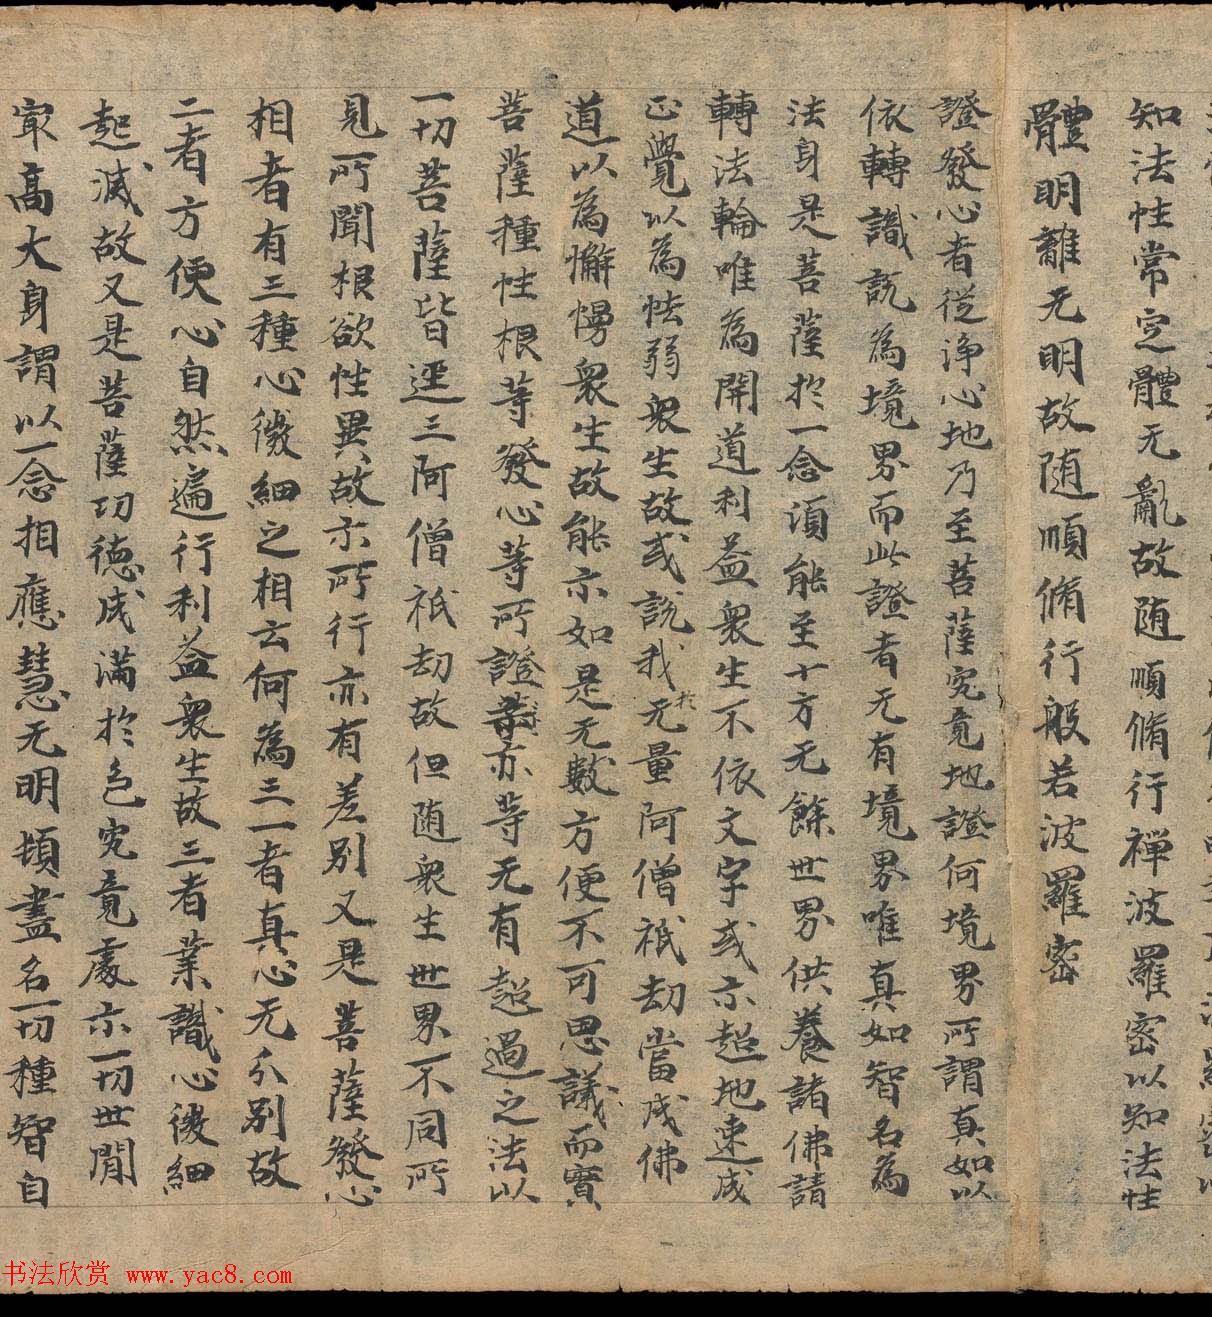 知法性常定體无亂故随順脩行禪波羅密以知法性
體明離无明故随順脩行般若波羅密
證發心者從淨心地乃至菩薩究竟地證何境界所謂真如以
依轉識說為境界而此證者无有境界唯真如智名為
法身是菩薩於一念須能至十方无餘世界供養諸佛請
轉法輪唯為開道利益衆生不依文字或示超地速成
正覺以為怯弱衆生故或說我於无量阿僧祇劫當成佛
道以為懈慢衆生故能示如是无數方便不可思議而實
菩薩種性根等發心等所證亦等无有超過之法以
一切菩薩皆逕三阿僧祇劫故但随衆生世界不同所
見所聞根欲性異故示所行亦有差別又是菩薩發心
相者有三種心微細之相云何為三一者真心无分別故
二者方便心自然遍行利益衆生故三者業識心微細
起滅故又是菩薩功德成滿於色究竟處示一切世間
冣高大身謂以一念相應慧无明頓盡名一切種智自
书法欣赏 www.yac8.com